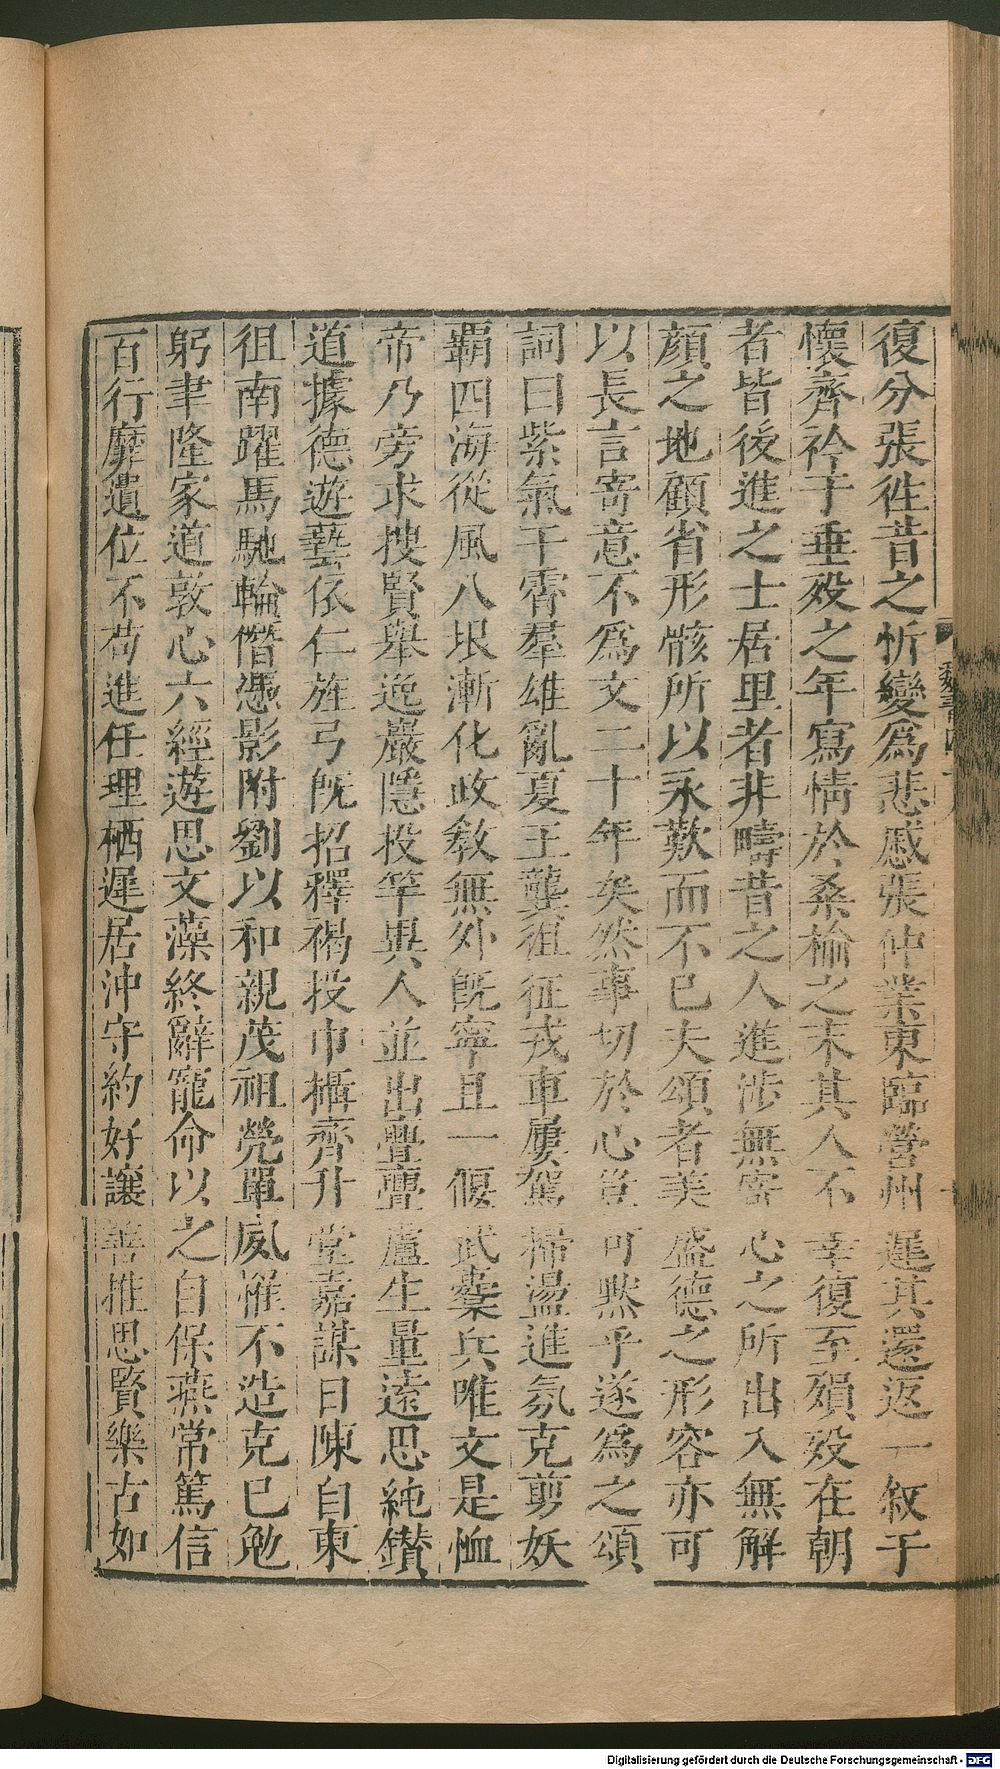 復分張徃昔之忻變爲悲慼張仲業東臨營州遲其還返一敘于
懷齊衿于垂殁之年寫情於桑榆之末其人不幸復至殞殁在朝
者皆後進之士居里者非疇昔之人進涉無寄心之所出入無解
顔之地顧省形骸所以永歎而不已夫頌者美盛德之形容亦可
以長言寄意不爲文二十年矣然事切於心豈可默乎遂爲之頌
詞曰紫氣干霄羣雄亂夏王龔徂征戎車屢駕掃盪進氛克剪妖
霸四海從風八垠漸化政敎無外旣寧且一偃武櫜兵唯文是恤
帝乃旁求搜賢舉逸巖隱投竿異人並出亹亹盧生量遠思純鑚
道據德遊藝依仁旌弓旣招釋褐投巾攝齊升堂嘉謀日陳自東
徂南躍馬馳輪僭憑影附劉以和親茂祖煢單夙罹不造克己勉
躬聿隆家道敦心六經遊思文藻終辭寵命以之自保燕常篤信
百行靡遺位不苟進任理栖遲居沖守約好讓善推思賢樂古如
魏書四十八
Digitalisierung gefördert durch die Deutsche Forschungsgemeinschaft - DFG